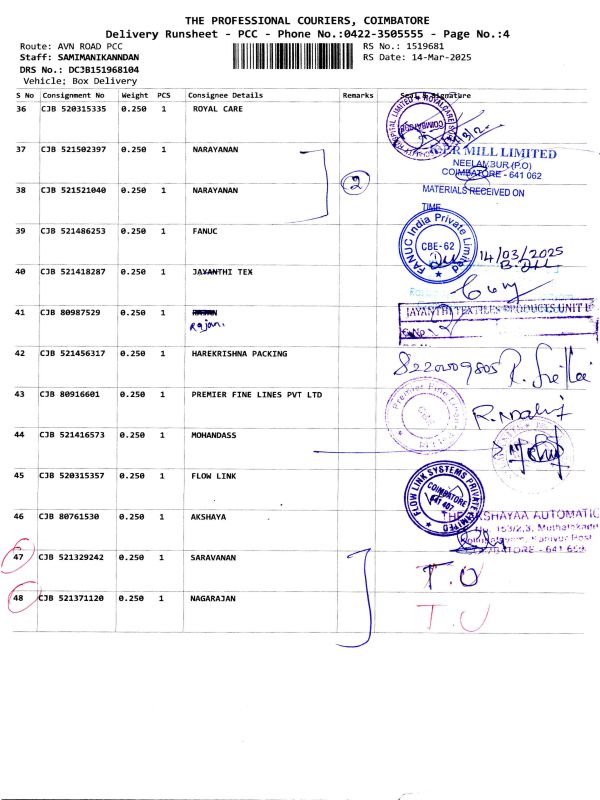 THE PROFESSIONAL COURIERS, COIMBATORE
Delivery Runsheet - PCC - Phone No.:0422-3505555 - Page No.:4
Route: AVN ROAD PCC RS No.: 1519681
Staff: SAMIMANIKANNDAN RS Date: 14-Mar-2025
DRS No.: DCJB151968104
Vehicle; Box Delivery
S No Consignment No Weight PCS Consignee Details Remarks Seal & Signature
36 CJB 520315335 0.250 1 ROYAL CARE
37 CJB 521502397 0.250 1 NARAYANAN
MILL LIMITED
NEELAMBUR (P.O)
COIMBATORE - 641 062
38 CJB 521521040 0.250 1 NARAYANAN 2
MATERIALS RECEIVED ON
TIME
39 CJB 521486253 0.250 1 FANUC
FANUC India Private Limited
CBE-62
14/03/2025
40 CJB 521418287 0.250 1 JAYANTHI TEX
41 CJB 80987529 0.250 1 RAJAN
Rajan
JAYANTHI TEXTILES PRODUCTS UNIT
42 CJB 521456317 0.250 1 HAREKRISHNA PACKING
8220009805
43 CJB 80916601 0.250 1 PREMIER FINE LINES PVT LTD
Premier Fine Lines
44 CJB 521416573 0.250 1 MOHANDASS
45 CJB 520315357 0.250 1 FLOW LINK
FLOW LINK SYSTEMS PRIVATE LIMITED
COIMBATORE
641 407
46 CJB 80761530 0.250 1 AKSHAYA
AKSHAYAA AUTOMATIC
153/2,3,
Kaniyur Post
COIMBATORE - 641 659
47 CJB 521329242 0.250 1 SARAVANAN T.U
48 CJB 521371120 0.250 1 NAGARAJAN T.U